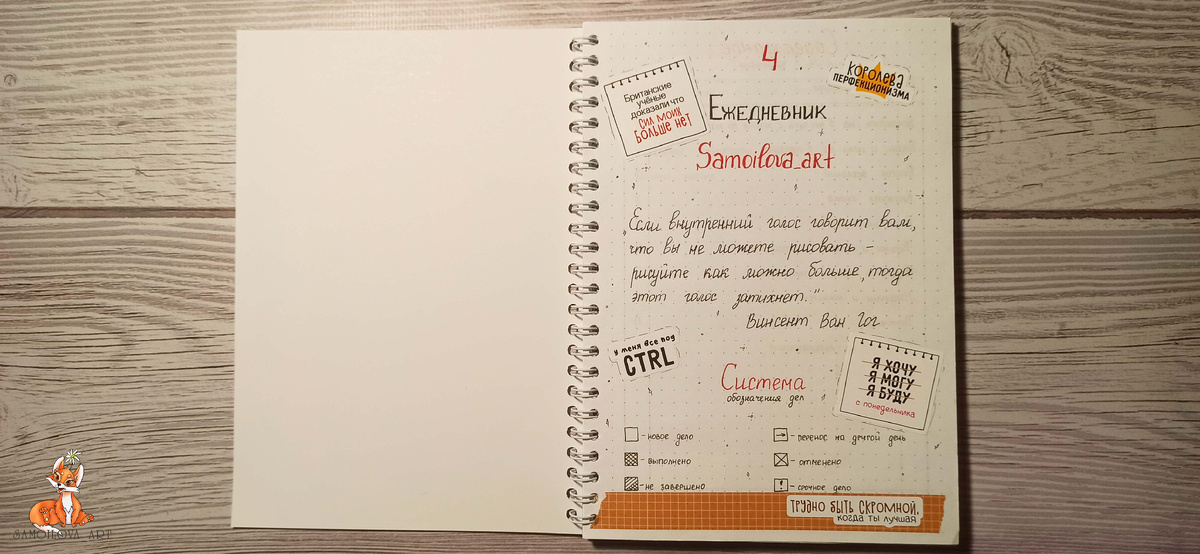 4
Британские
учёные
доказали что
сил моих
больше нет
Королева
перфекционизма
Ежедневник
Samoilova_art
„Если внутренний голос говорит вам,
что вы не можете рисовать –
рисуйте как можно больше, тогда
этот голос затихнет."
Винсент Ван Гог
у меня все под
CTRL
Система
обозначения дел
Я ХОЧУ
Я МОГУ
Я БУДУ
с понедельника
- новое дело
- перенос на другой день
- выполнено
- отменено
- не завершено
! - срочное дело
ТРУДНО БЫТЬ СКРОМНОЙ,
КОГДА ТЫ ЛУЧШАЯ
SAMOILOVA_ART